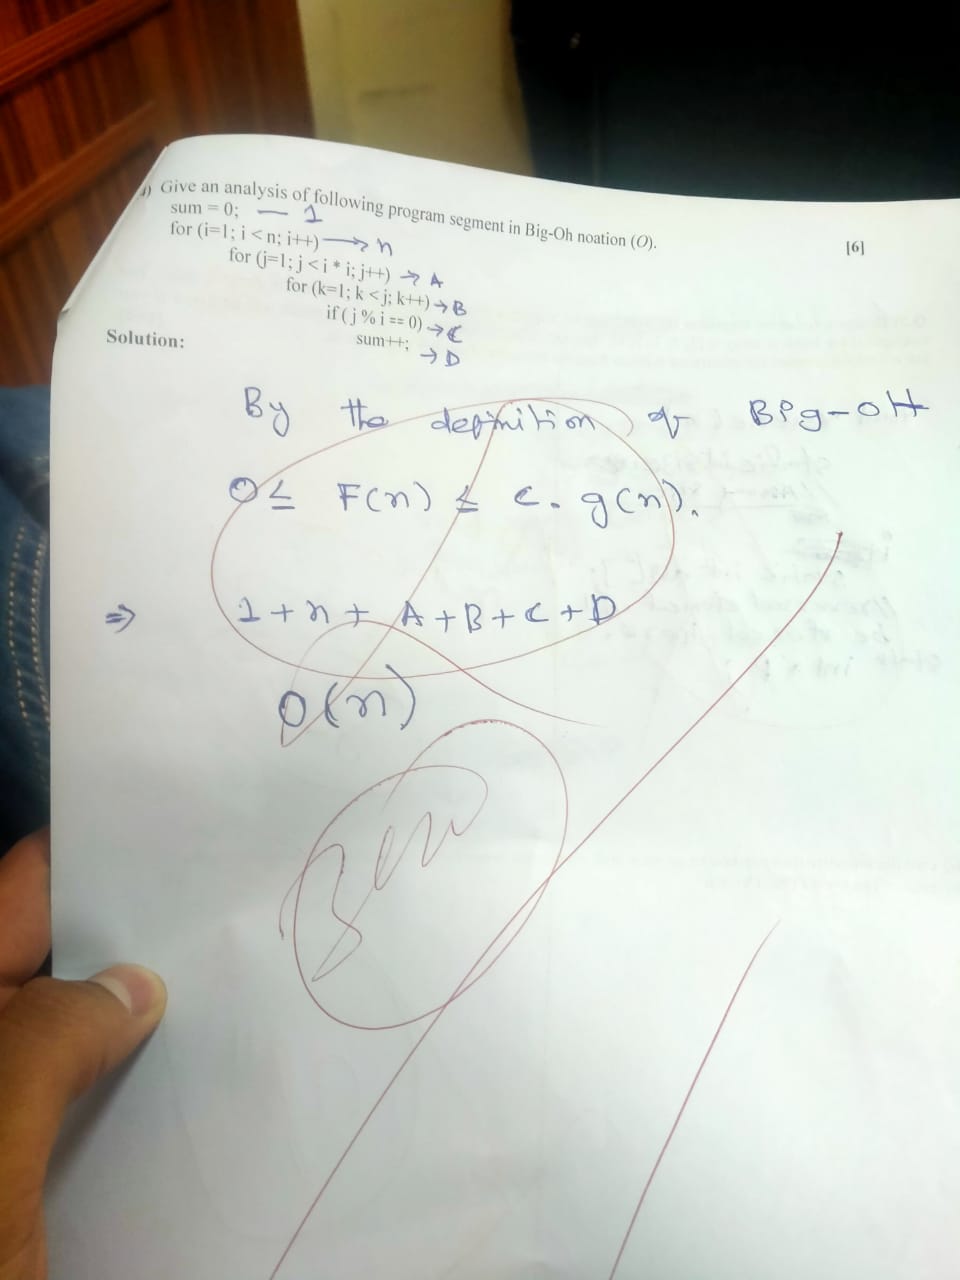 4) Give an analysis of following program segment in Big-Oh noation (O). [6]
sum = 0; — 1
for (i=1; i < n; i++) → n
for (j=1; j < i * i; j++) → A
for (k=1; k < j; k++) → B
if ( j % i == 0) → C
sum++; → D
Solution:
By the definition of Big-OH
0 ≤ F(n) ≤ c. g(n).
⇒ 1 + n + A + B + C + D
O(n)
Zero